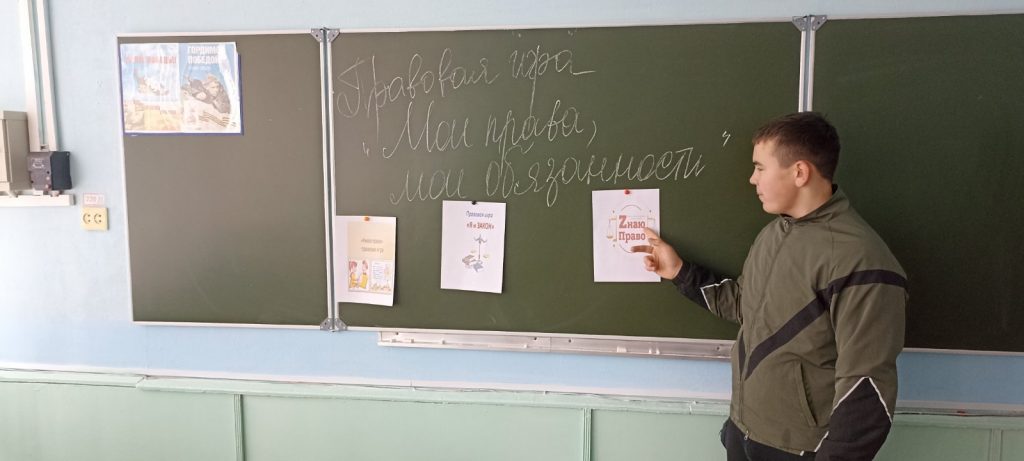 ГОРДИМСЯ
ПОБЕДОЙ
Правовая игра
"Мои права,
мои обязанности"
правовая игра
Правовая игра
«Я и ЗАКОН»
Zнаю
Право
220 В